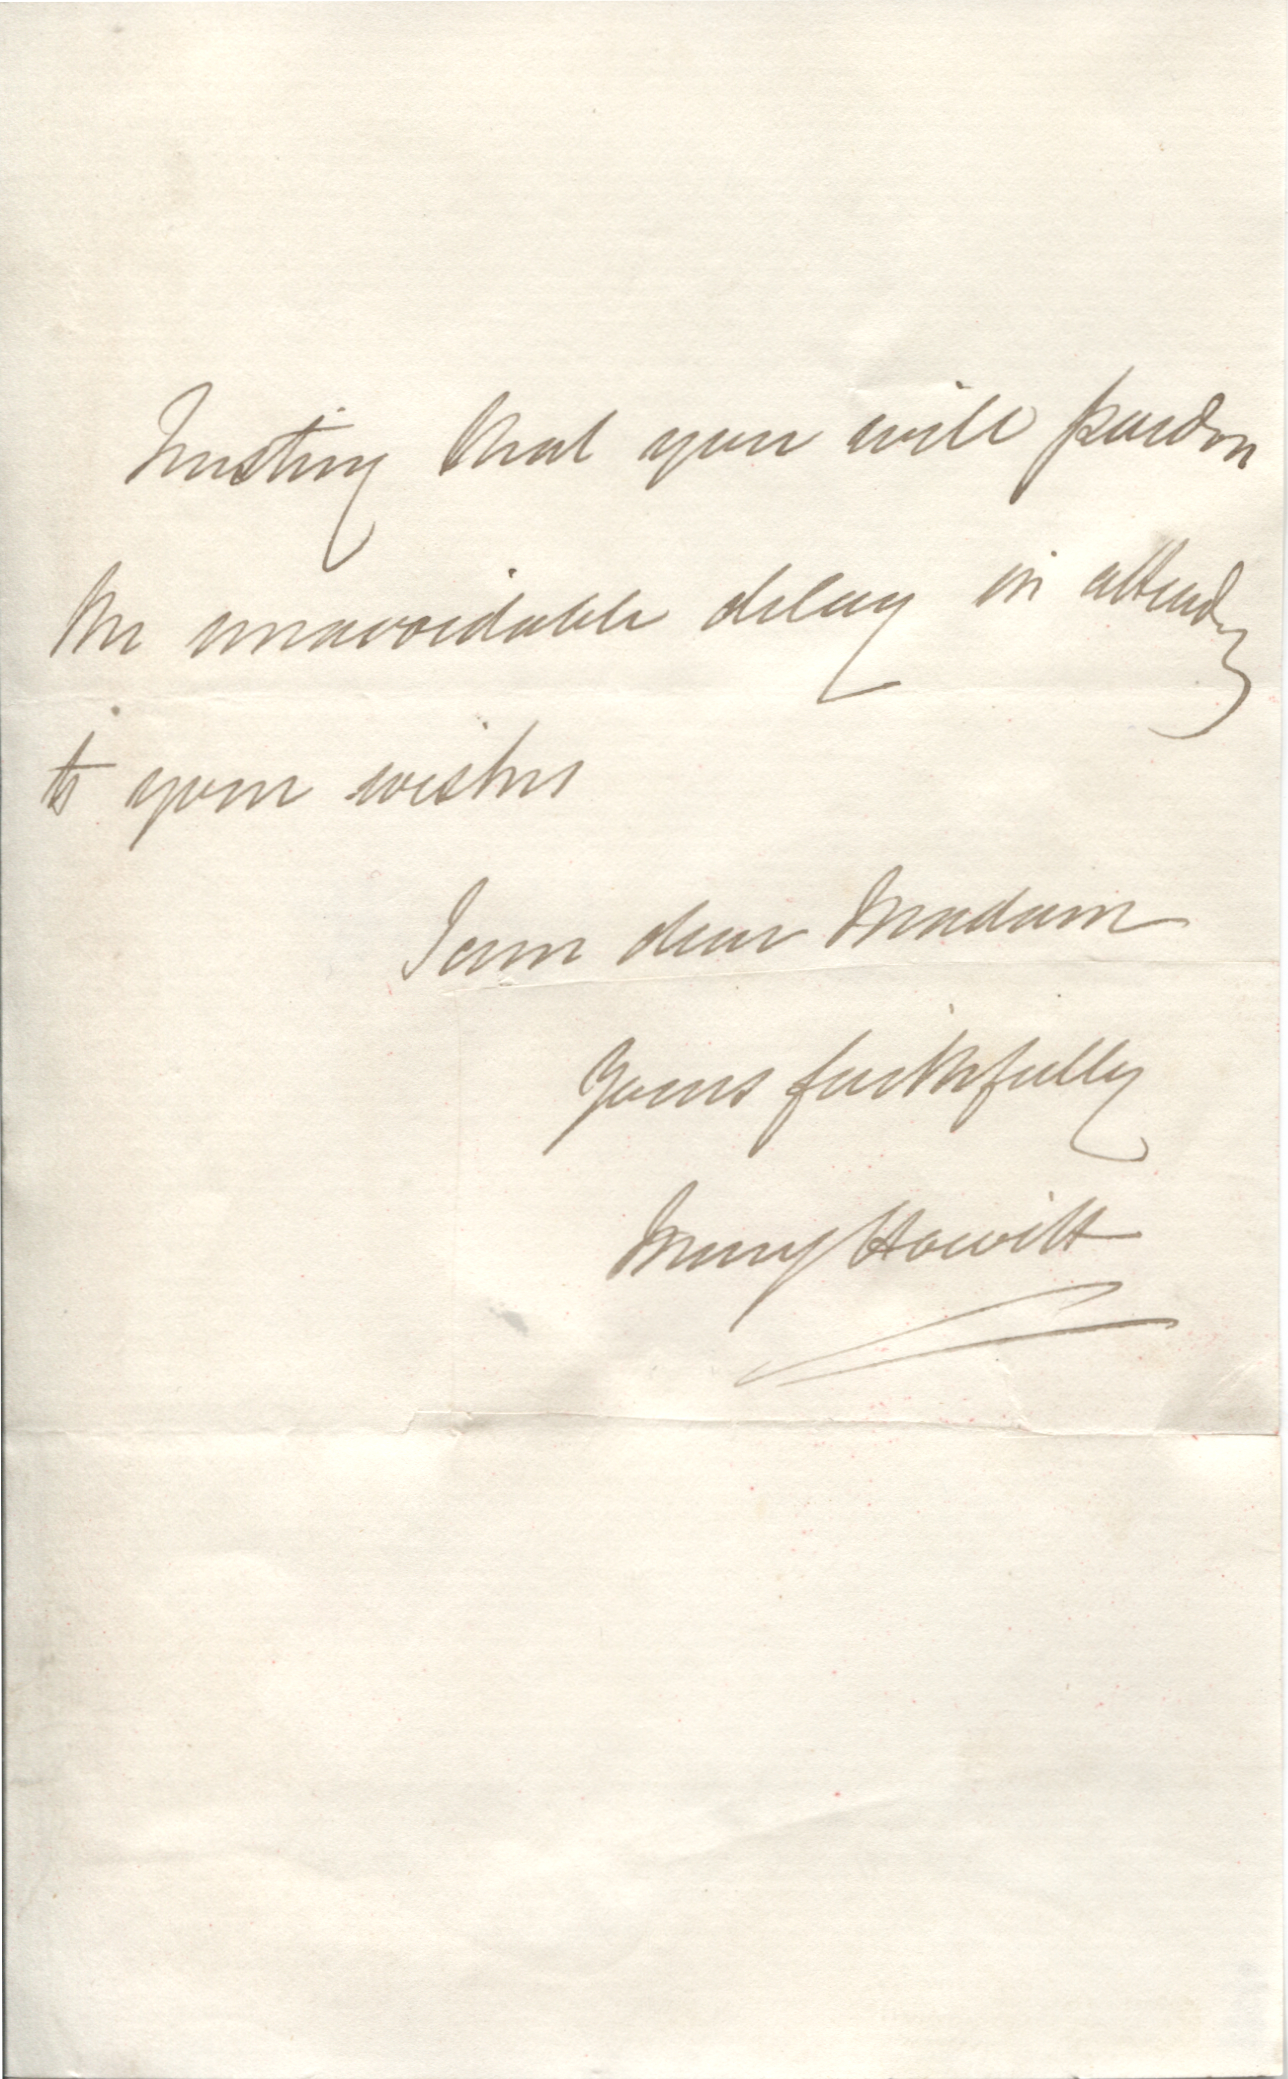 Trusting that you will pardon
the unavoidable delay in attending
to your wishes
I am dear Madam
Yours faithfully
Mary Howitt